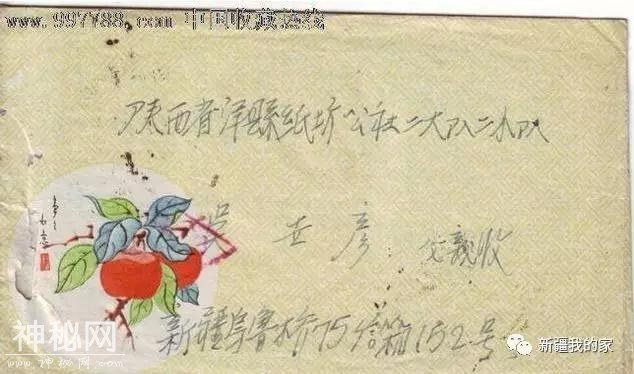 www.997788.com 中国收藏热线
陕西省洋縣纸坊公社二大队二小队
吴 世 彦 父亲收
新疆乌鲁木齐75信箱152号
神秘网
WWW.SHENMIWANG.COM
新疆我的家